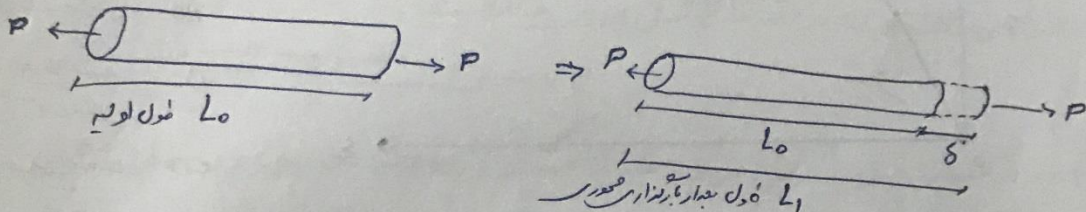 P P
L₀ طول اولیه
⇒ P P
L₀ δ
L₁ طول بعد از بارگذاری محوری